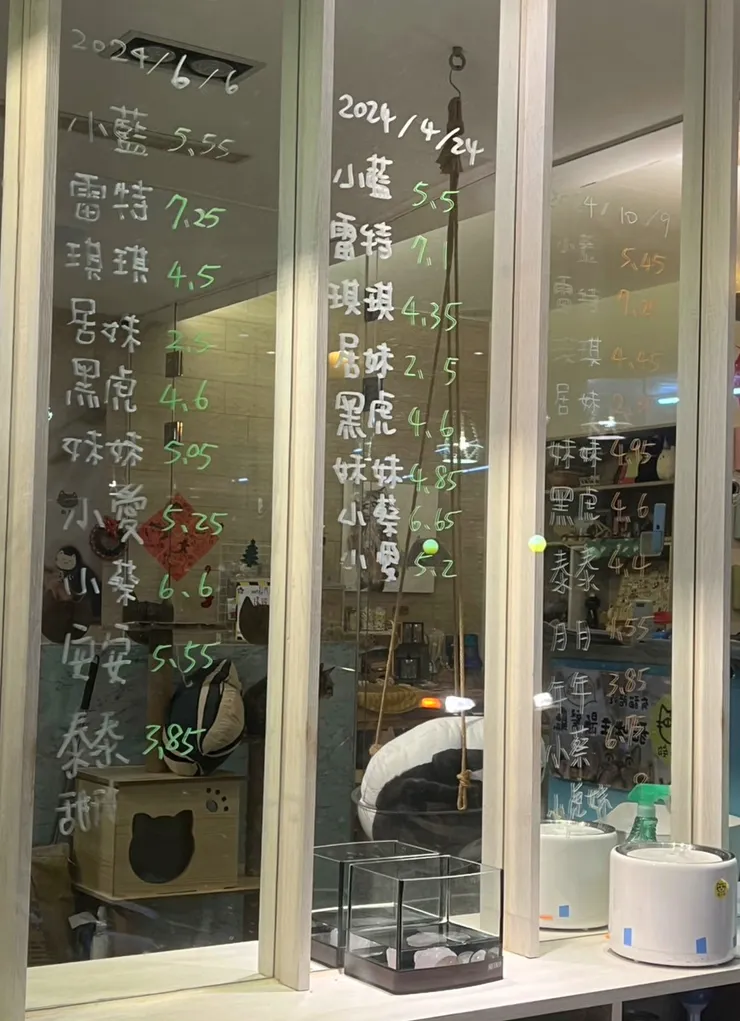 2024/6/6
小藍 5.55
雷特 7.25
琪琪 4.5
居妹
黑虎 4.6
妹妹 5.05
小愛 5.25
小蔡 6.6
安安 5.55
泰泰 3.85
2024/4/24
小藍 5.5
雷特 7.1
琪琪 4.35
居妹 2.5
黑虎 4.6
妹妹 4.85
小蔡 6.65
小愛 5.2
2024/10/9
小藍 5.45
雷特
琪 4.45
居妹
妹妹 4.95
黑虎 4.6
泰泰 4.4
月月
年年 3.85
小蔡
小虎妹